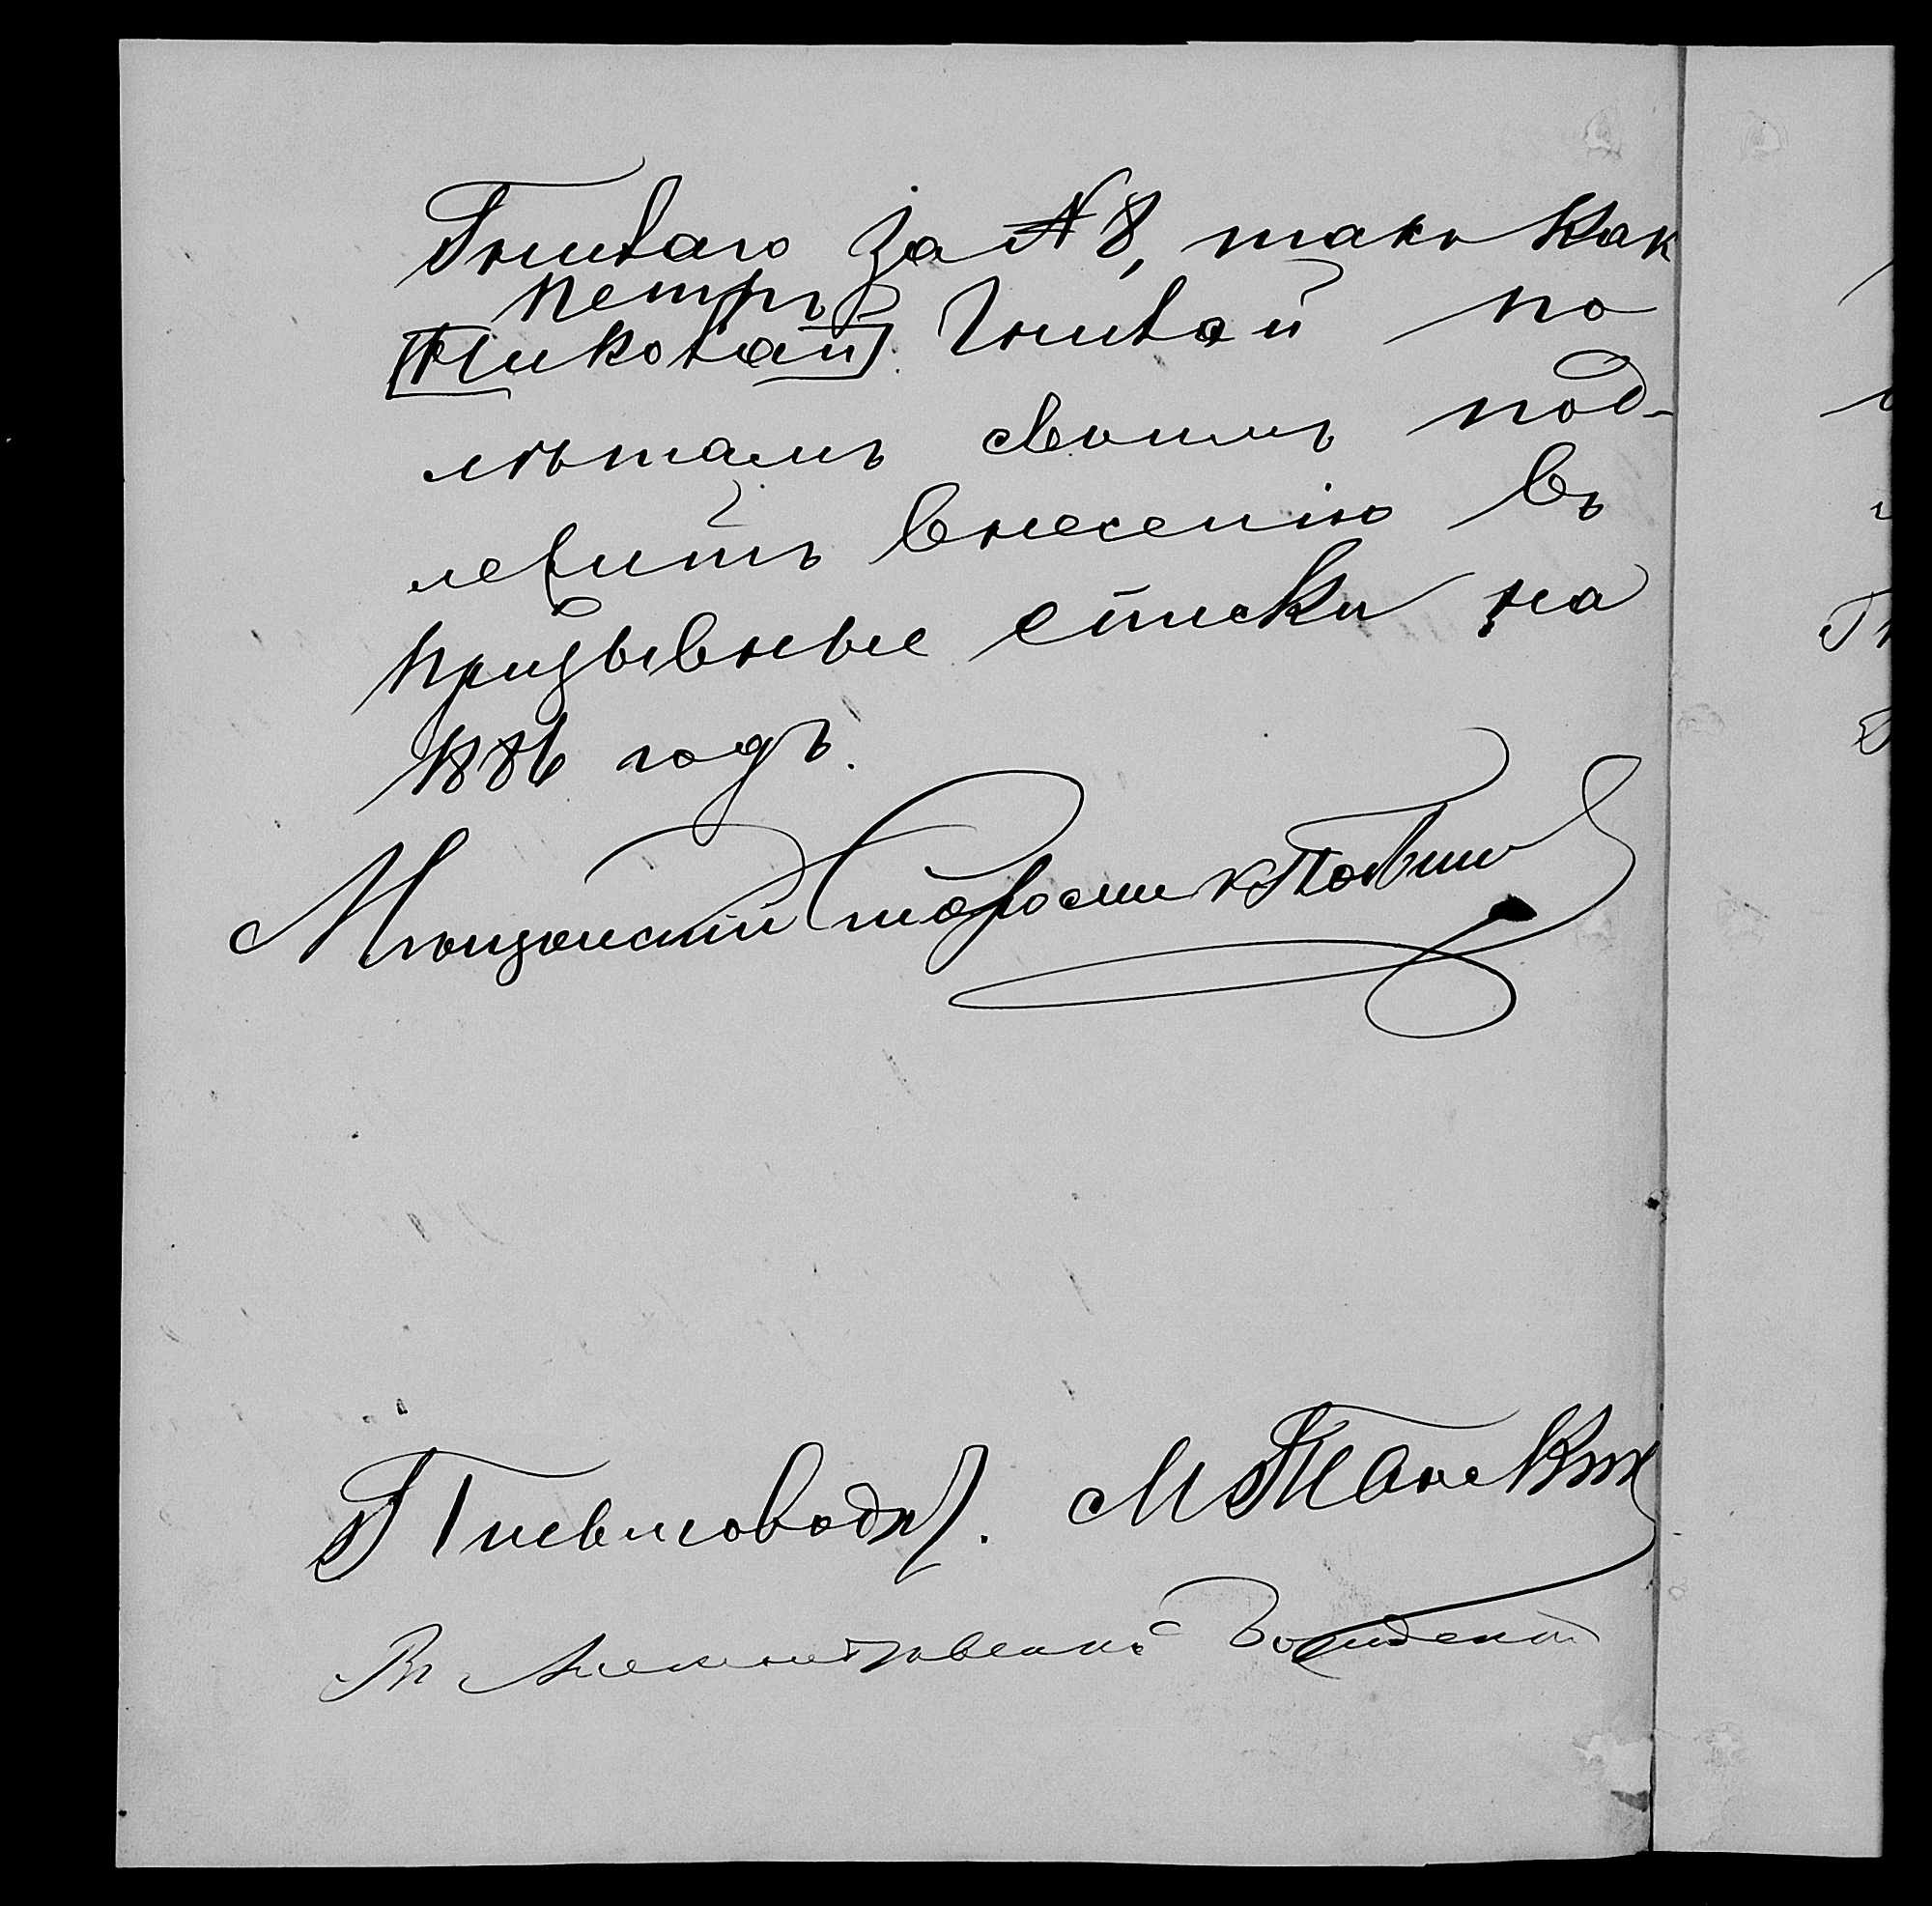 Гниваго за № 8, такъ как
Петръ
[Николай]. Гнивой по
лѣтамъ своимъ под-
лежитъ внесенію въ
призывные списки на
1886 годъ.
Мѣщанскій Староста
Письмоводи. М